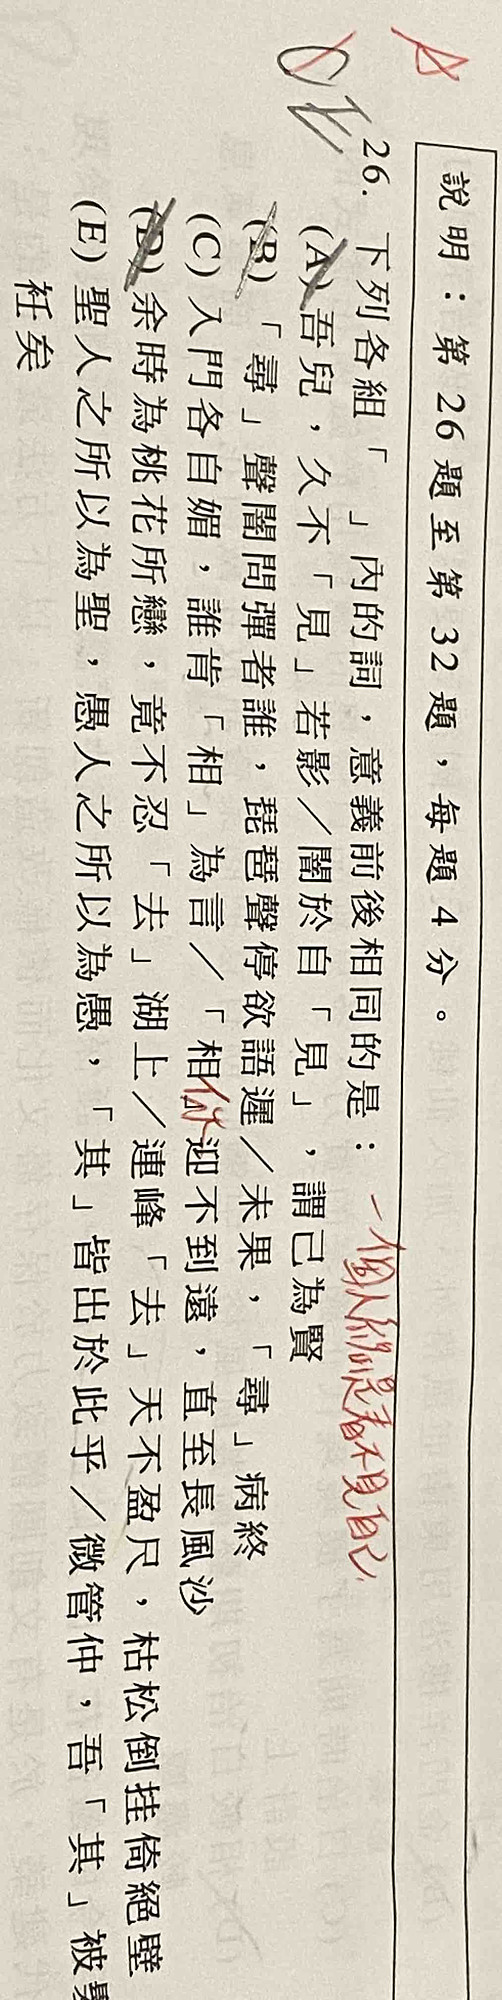 說明：第 26 題至第 32 題，每題 4 分。
26. 下列各組「　」內的詞，意義前後相同的是：
一個人總是看不見自己
(A) 吾兒，久不「見」若影／闇於自「見」，謂己為賢
(B) 「尋」聲闇問彈者誰，琵琶聲停欲語遲／未果，「尋」病終
(C) 入門各自媚，誰肯「相」為言／「相迎不到遠，直至長風沙
(D) 余時為桃花所戀，竟不忍「去」湖上／連峰「去」天不盈尺，枯松倒挂倚絕壁
(E) 聖人之所以為聖，愚人之所以為愚，「其」皆出於此乎／微管仲，吾「其」被
衽矣